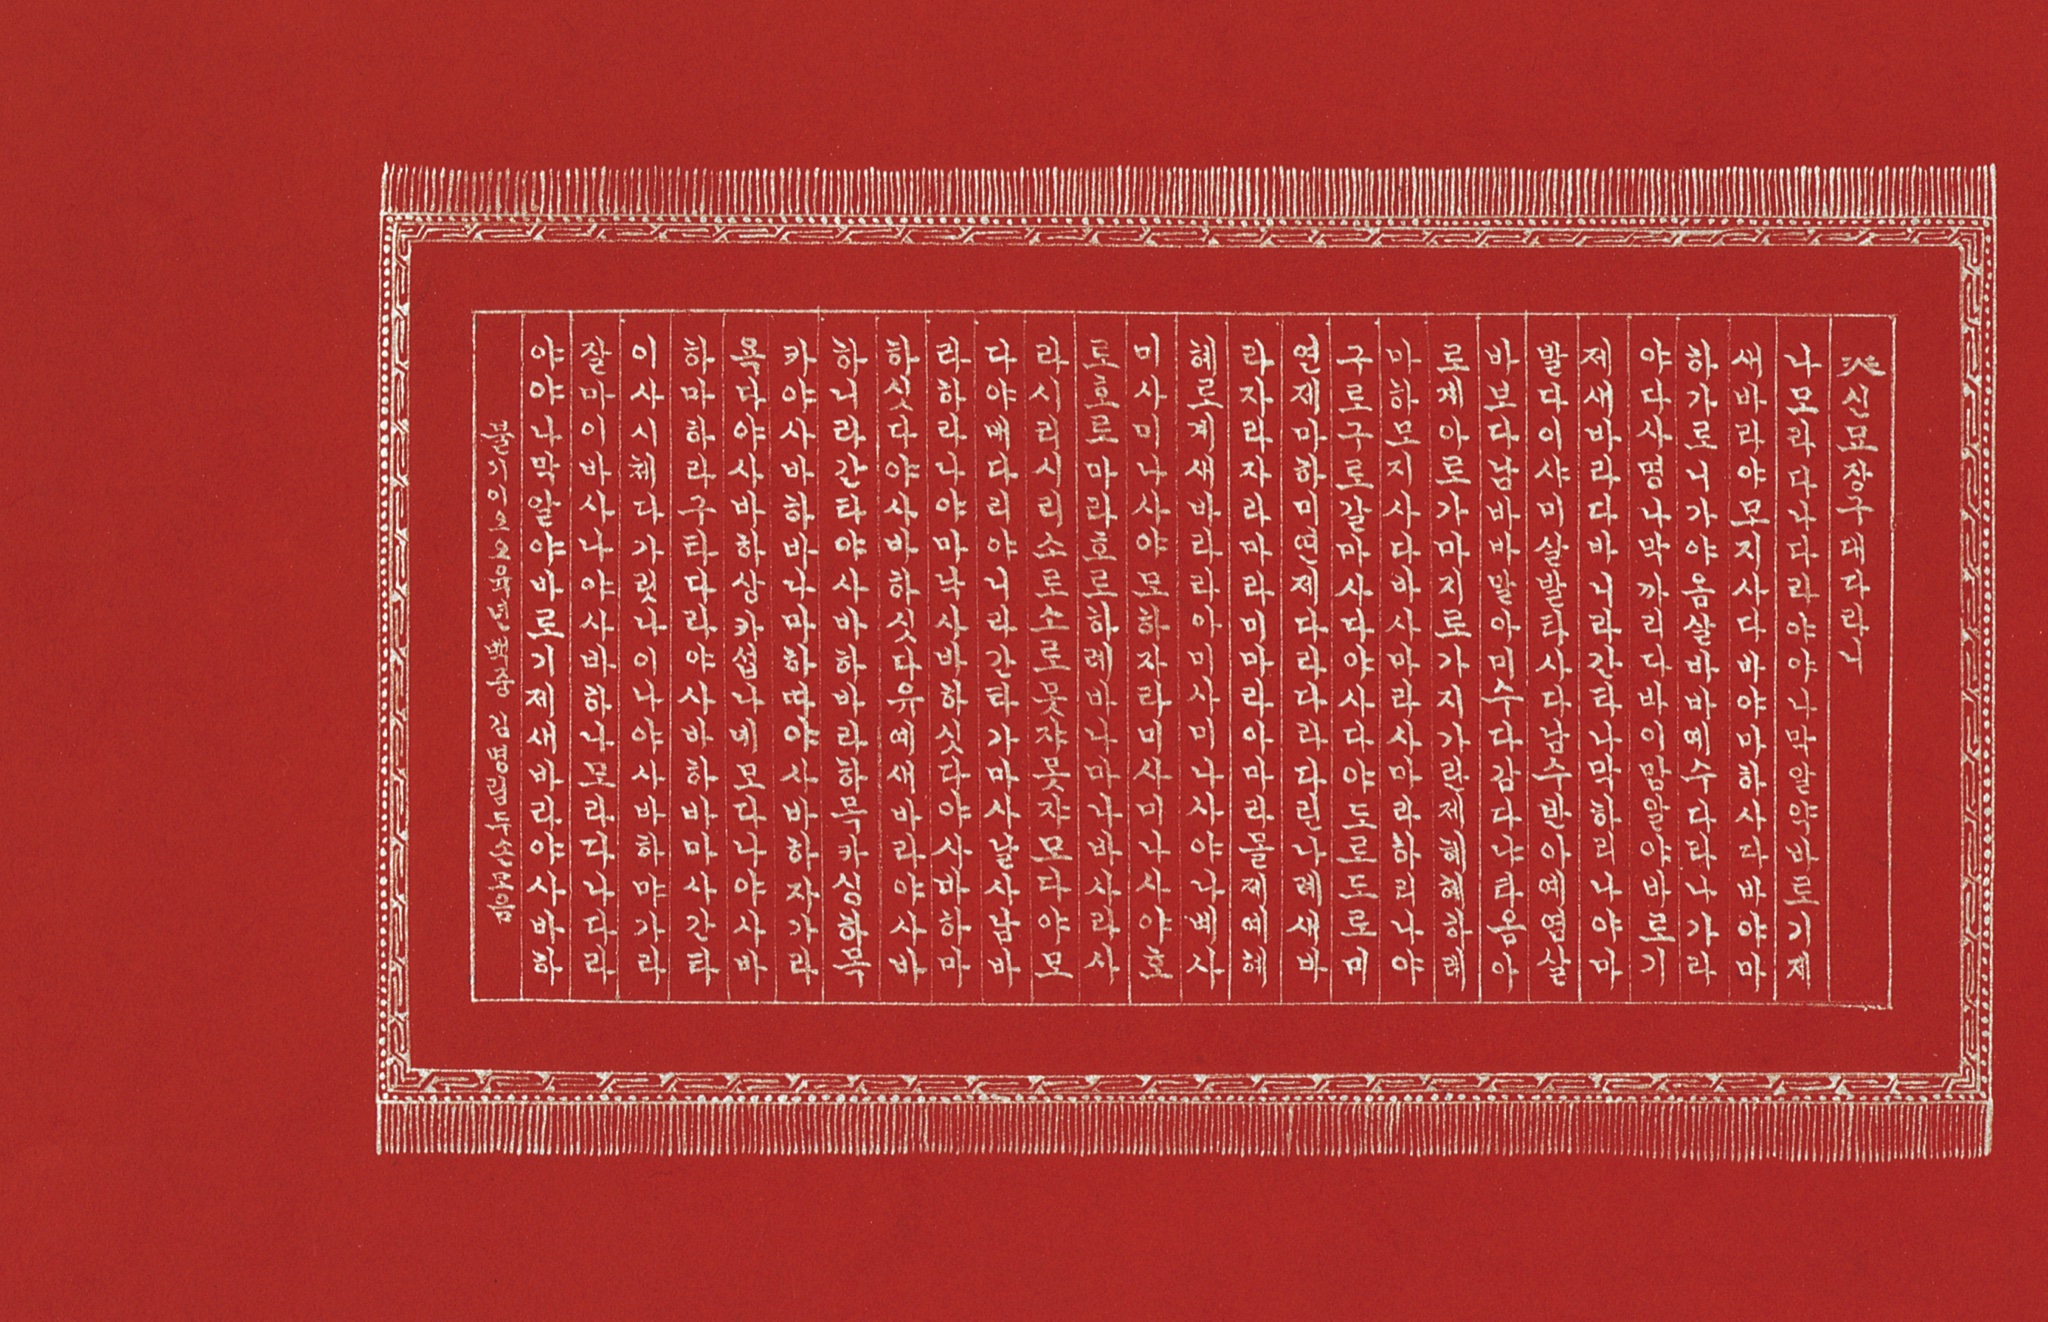 신묘장구대다라니
나모라다나다라야야나막알약바로기제
새바라야모지사다바야마하사다바야마
하가로니가야옴살바바예수다라나가라
야다사명나막까리다바이맘알야바로기
제새바라다바니라간타나막하리나야마
발다이샤미살발타사다남수반아예염살
바보다남바바말아미수다감다냐타옴아
로계아로가마지로가지가란제혜혜하례
마하모지사다바사마라사마라하리나야
구로구로갈마사다야사다야도로도로미
연제마하미연제다라다라다린나례새바
라자라자라마라미마라아마라몰제예혜
혜로계새바라라아미사미나사야나베사
미사미나사야모하자라미사미나사야호
로호로마라호로하례바나마나바사라사
라시리시리소로소로못쟈못쟈모다야모
다야매다리야니라간타가마사날사남바
라하라나야마낙사바하싯다야사바하마
하싯다야사바하싯다유예새바라야사바
하니라간타야사바하바라하목카싱하목
카야사바하바나마하따야사바하자가라
욕다야사바하상카섭나네모다나야사바
하마하라구타다라야사바하바마사간타
이사시체다가릿나이나야사바하먀가라
잘마이바사나야사바하나모라다나다라
야야나막알야바로기제새바라야사바하
불기이오오육년 백중 김명림두손모음